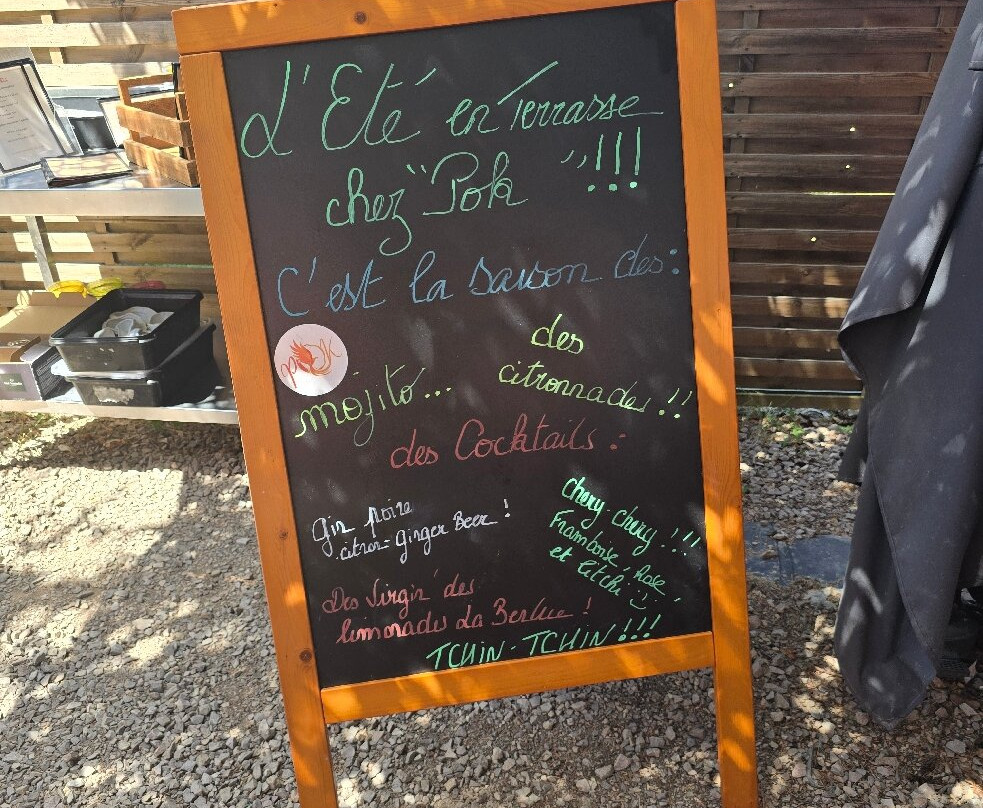 L'Eté en Terrasse
chez "Pok"!!!
C'est la saison des:
pOK
mojito...
des
citronnades!!
des Cocktails:
Gin poire
citron-ginger Beer!
Chery-Chery!!!
Framboise, Rose,
et litchi :)
Des Virgin des
limonades La Berlue!
TCHIN-TCHIN!!!